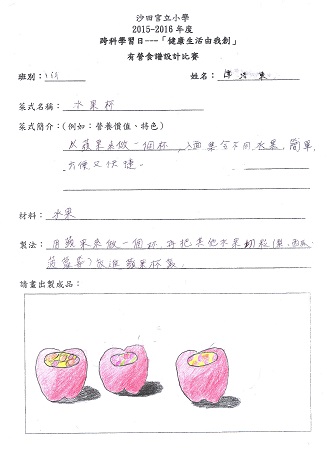 沙田官立小學
2015-2016 年度
跨科學習日---「健康生活由我創」
有營食譜設計比賽
班別： 姓名：
菜式名稱： 水果杯
菜式簡介：(例如：營養價值、特色)
以蘋果來做一個杯，入面集合不同水果，簡單，
方便又快捷。
材料： 水果
製法： 用蘋果來做一個杯，再把其他水果切粒(
)放進蘋果杯裏。
請畫出製成品：